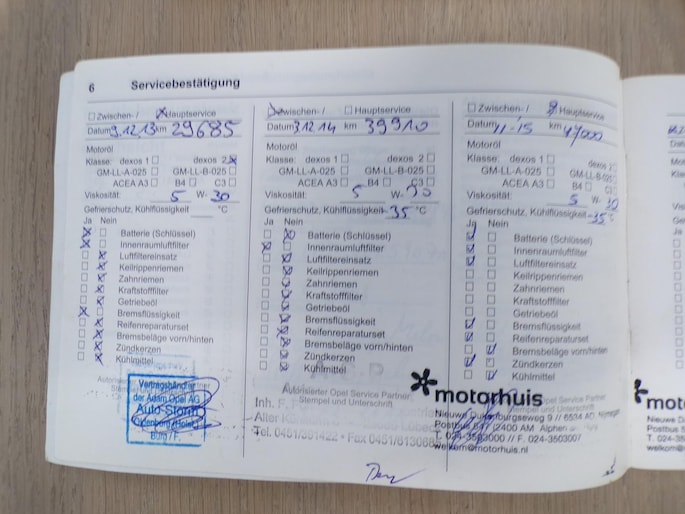 6 Servicebestätigung
Zwischen- / Hauptservice
Datum 9.12.13 km 29685
Motoröl
Klasse: dexos 1 dexos 2
GM-LL-A-025 GM-LL-B-025
ACEA A3 B4 C3
Viskosität: 5 W- 30
Gefrierschutz, Kühlflüssigkeit °C
Ja Nein
Batterie (Schlüssel)
Innenraumluftfilter
Luftfiltereinsatz
Keilrippenriemen
Zahnriemen
Kraftstofffilter
Getriebeöl
Bremsflüssigkeit
Reifenreparaturset
Bremsbeläge vorn/hinten
Zündkerzen
Kühlmittel
Vertragshändler
der Adam Opel AG
Auto-Storm
Burg / F.
Zwischen- / Hauptservice
Datum 3.12.14 km 39910
Motoröl
Klasse: dexos 1 dexos 2
GM-LL-A-025 GM-LL-B-025
ACEA A3 B4 C3
Viskosität: 5 W-
Gefrierschutz, Kühlflüssigkeit -35 °C
Ja Nein
Batterie (Schlüssel)
Innenraumluftfilter
Luftfiltereinsatz
Keilrippenriemen
Zahnriemen
Kraftstofffilter
Getriebeöl
Bremsflüssigkeit
Reifenreparaturset
Bremsbeläge vorn/hinten
Zündkerzen
Kühlmittel
Autorisierter Opel Service Partner
Stempel und Unterschrift
Inh. F.
Alter
Tel. 0451/391422 • Fax 0451/613068
Zwischen- / Hauptservice
Datum 11-'15 km 47000
Motoröl
Klasse: dexos 1 dexos 2
GM-LL-A-025 GM-LL-B-025
ACEA A3 B4 C3
Viskosität: 5 W- 30
Gefrierschutz, Kühlflüssigkeit -35 °C
Ja Nein
Batterie (Schlüssel)
Innenraumluftfilter
Luftfiltereinsatz
Keilrippenriemen
Zahnriemen
Kraftstofffilter
Getriebeöl
Bremsflüssigkeit
Reifenreparaturset
Bremsbeläge vorn/hinten
Zündkerzen
Kühlmittel
Opel Service Partner
Stempel und Unterschrift
motorhuis
Nieuwe Dukenburgseweg 9 // 6534 AD Nijmegen
Postbus 547 (2400 AM Alphen
T. 024-3503000 // F. 024-3503007
welkom@motorhuis.nl
moto
Nieuwe D
Postbus 5
T. 024-3
welkom@